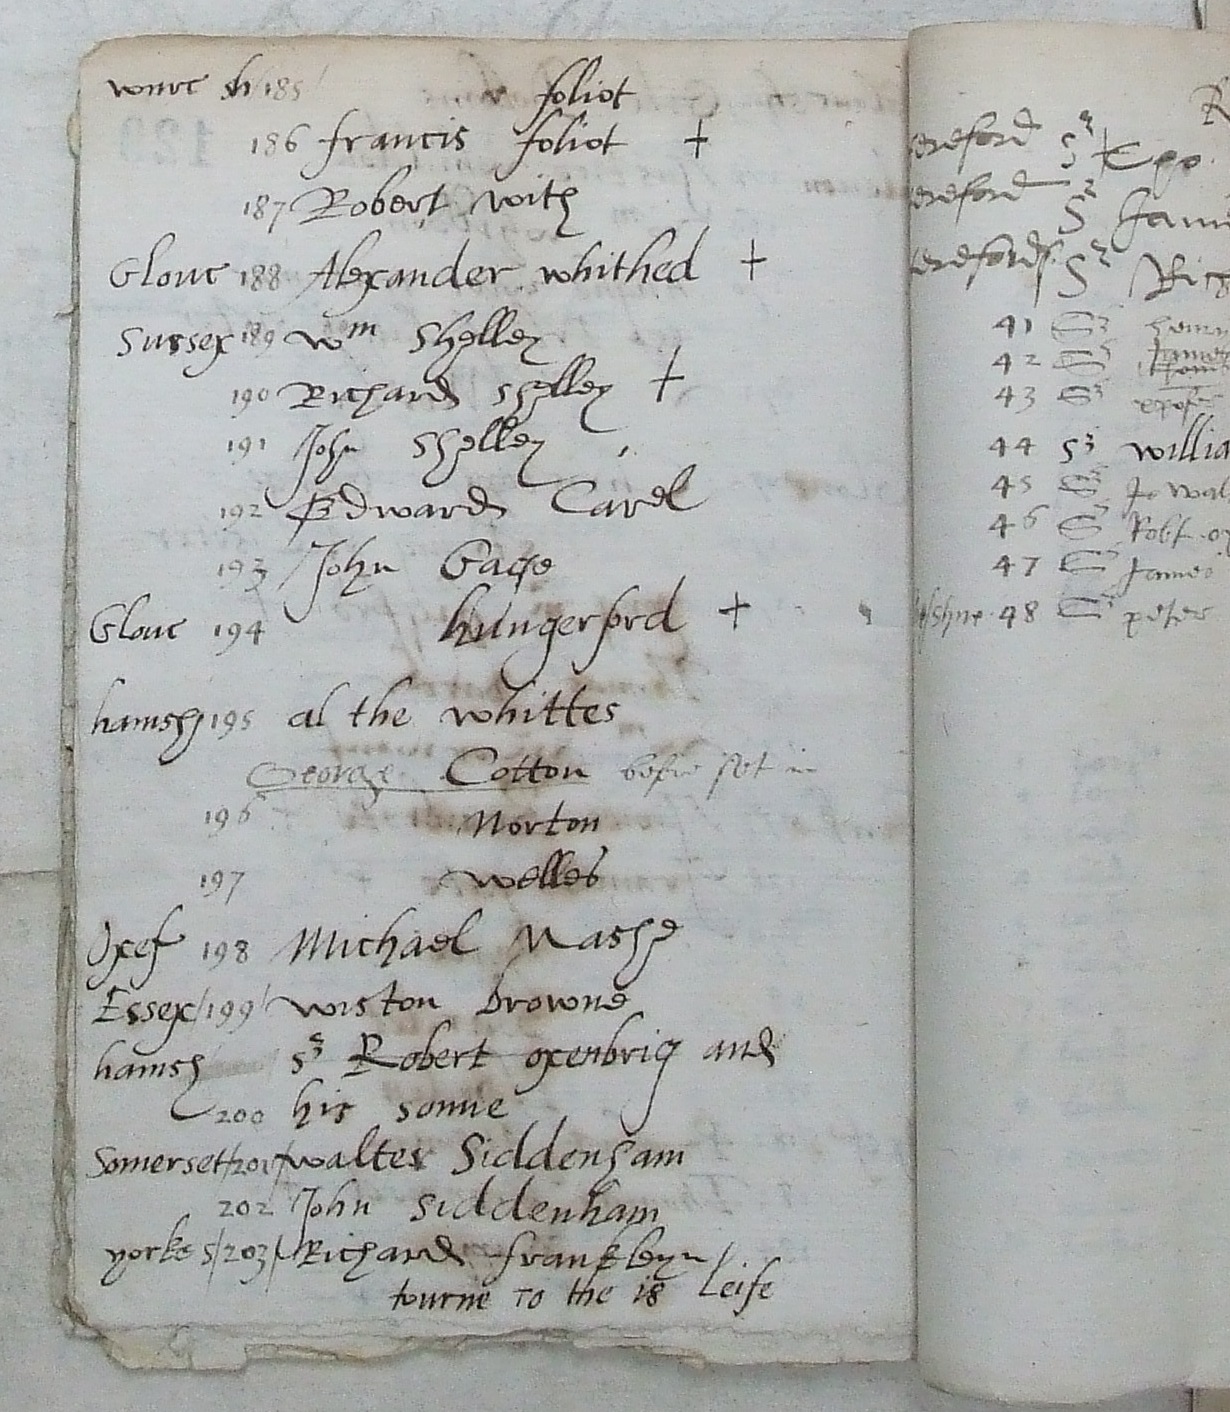 worc sh/185/ foliot
186 francis foliot +
187 Robert with
Glouc 188 Alexander whithed +
Sussex 189 Wm Shelley
190 Richard Shelley +
191 John Shelley
192 Edward Carel
193 John Gage
Glouc 194 hungerford +
hamsh 195 al the whittes
George Cotton before set in
196 Norton
197 welles
Oxef 198 Michael Nashe
Essex/199/ wiston browne
hamsh Sr Robert oxenbrig and
200 his sonne
Somerset/201/walter Siddenham
202 John siddenham
yorke s/203/ Richard frankleyn/
tourne to the 18 leife
ereford Sr + Cpo
ereford Sr Jam
erefords Sr Rich
41 Sr henr
42 Sr James
43 Sr
44 Sr willia
45 Sr Jo wal
46 Sr Robt
47 Sr James
shyre 48 Sr peter